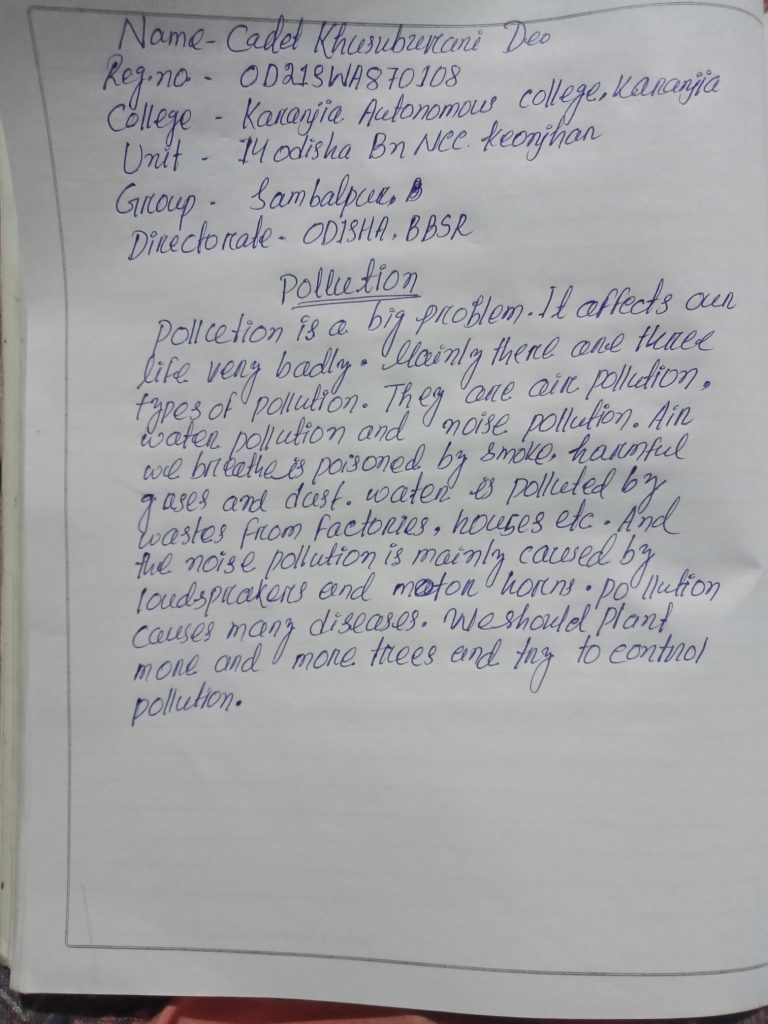 Name - Cadet Khusuburani Deo
Reg.no - OD21SWA870108
College - Karanjia Autonomous college, Karanjia
Unit - 14 odisha Bn NCC. Keonjhar
Group - Sambalpur, B
Directorate - ODISHA, BBSR
Pollution
Pollution is a big problem. It affects our
life very badly. Mainly there are three
types of pollution. They are air pollution,
water pollution and noise pollution. Air
we breathe is poisoned by smoke, harmful
gases and dust. water is polluted by
wastes from factories, houses etc. And
the noise pollution is mainly caused by
loudspeakers and motor horns. pollution
causes many diseases. We should plant
more and more trees and try to control
pollution.